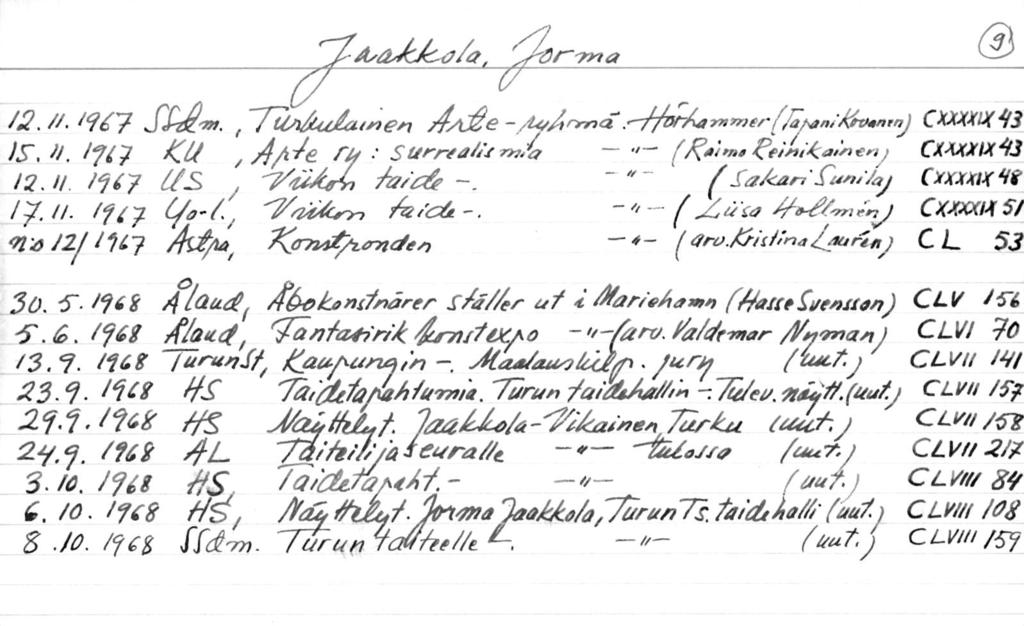 Jaakkola, Jorma 9
12.11.1967 SSdm., Turkulainen Arte-ryhmä. Hörhammer (Tapani Kovanen) CXXXXIX 43
15.11.1967 KU, Arte ry: surrealismia -"- (Raimo Reinikainen) CXXXXIX 43
12.11.1967 US, Viikon taide -. -"- (Sakari Sunila) CXXXXIX 48
17.11.1967 Yo-l., Viikon taide -. -"- (Liisa Hollmén) CXXXXIX 51
n:o 12/1967 Astra, Konstronden -"- (arv. Kristina Laurén) CL 53
30.5.1968 Åland, Åbokonstnärer ställer ut i Mariehamn (Hasse Svensson) CLV 156
5.6.1968 Åland, Fantasirik konstexpo -"- (arv. Valdemar Nyman) CLVI 70
13.9.1968 TurunSt, Kaupungin -. Maalauskilp. jury (uut.) CLVII 141
23.9.1968 HS Taidetapahtumia. Turun taidehallin -. Tulev. näytt. (uut.) CLVII 157
29.9.1968 HS Näyttelyt. Jaakkola-Vikainen, Turku (uut.) CLVII 158
24.9.1968 AL Taiteilijaseuralle -"- tulossa (uut.) CLVII 217
3.10.1968 HS, Taidetapaht. - -"- (uut.) CLVIII 84
6.10.1968 HS, Näyttelyt. Jorma Jaakkola, Turun Ts. taidehalli (uut.) CLVIII 108
8.10.1968 SSdm. Turun taiteelle -. -"- (uut.) CLVIII 159